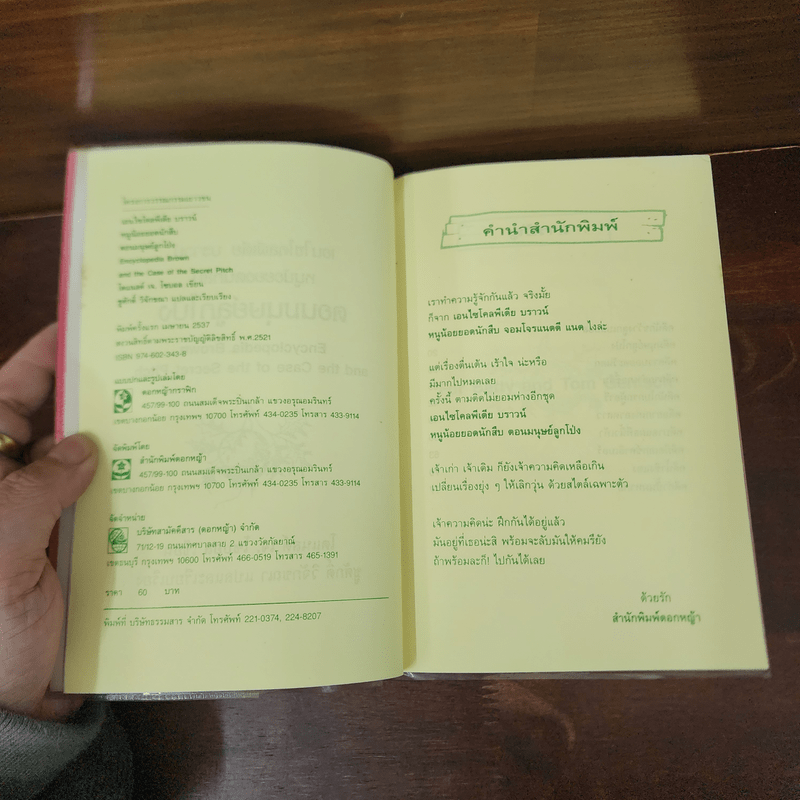 โครงการวรรณกรรมเยาวชน
เอนไซโคลพีเดีย บราวน์
หนูน้อยยอดนักสืบ
ตอนมนุษย์ลูกโป่ง
Encyclopedia Brown
and the Case of the Secret Pitch
โดนัลด์ เจ. โซบอล เขียน
ชูศักดิ์ วิจักขณา แปลและเรียบเรียง
พิมพ์ครั้งแรก เมษายน 2537
สงวนสิทธิ์ตามพระราชบัญญัติลิขสิทธิ์ พ.ศ.2521
ISBN 974-602-343-8
แบบปกและรูปเล่มโดย
ดอกหญ้ากราฟิก
457/99-100 ถนนสมเด็จพระปิ่นเกล้า แขวงอรุณอมรินทร์
เขตบางกอกน้อย กรุงเทพฯ 10700 โทรศัพท์ 434-0235 โทรสาร 433-9114
จัดพิมพ์โดย
สำนักพิมพ์ดอกหญ้า
457/99-100 ถนนสมเด็จพระปิ่นเกล้า แขวงอรุณอมรินทร์
เขตบางกอกน้อย กรุงเทพฯ 10700 โทรศัพท์ 434-0235 โทรสาร 433-9114
จัดจำหน่าย
บริษัทสามัคคีสาร (ดอกหญ้า) จำกัด
71/12-19 ถนนเทศบาลสาย 2 แขวงวัดกัลยาณ์
เขตธนบุรี กรุงเทพฯ 10600 โทรศัพท์ 466-0519 โทรสาร 465-1391
ราคา 60 บาท
พิมพ์ที่ บริษัทธรรมสาร จำกัด โทรศัพท์ 221-0374, 224-8207
คำนำสำนักพิมพ์
เราทำความรู้จักกันแล้ว จริงมั้ย
ก็จาก เอนไซโคลพีเดีย บราวน์
หนูน้อยยอดนักสืบ จอมโจรแนตตี แนต ไงล่ะ
แต่เรื่องตื่นเต้น เร้าใจ น่ะหรือ
มีมากไปหมดเลย
ครั้งนี้ ตามติดไม่ยอมห่างอีกชุด
เอนไซโคลพีเดีย บราวน์
หนูน้อยยอดนักสืบ ตอนมนุษย์ลูกโป่ง
เจ้าเก่า เจ้าเดิม ก็ยังเจ้าความคิดเหลือเกิน
เปลี่ยนเรื่องยุ่ง ๆ ให้เลิกวุ่น ด้วยสไตล์เฉพาะตัว
เจ้าความคิดน่ะ ฝึกกันได้อยู่แล้ว
มันอยู่ที่เธอน่ะสิ พร้อมจะลับมันให้คมรึยัง
ถ้าพร้อมละก็! ไปกันได้เลย
ด้วยรัก
สำนักพิมพ์ดอกหญ้า